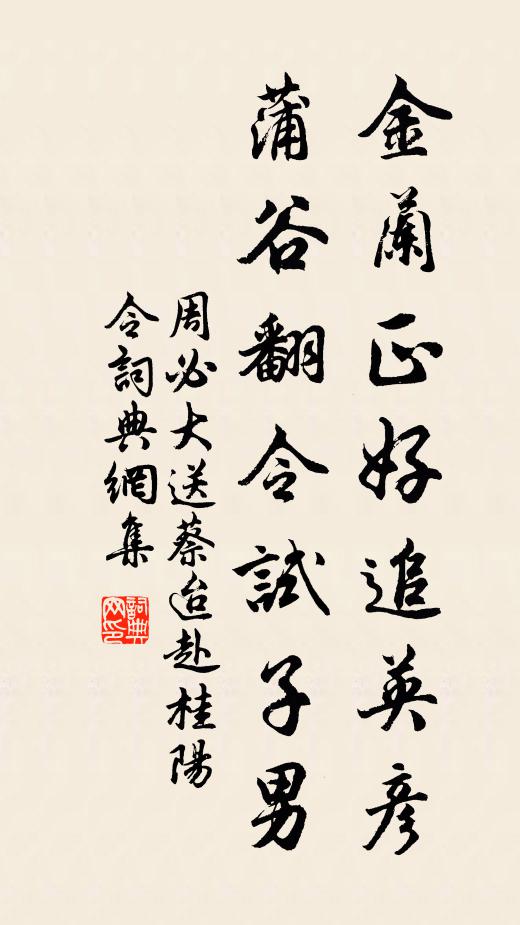 金蘭正好追英彥
蒲谷翻令試子男
周必大送蔡迨赴桂陽
令詞典網集
詞典网印